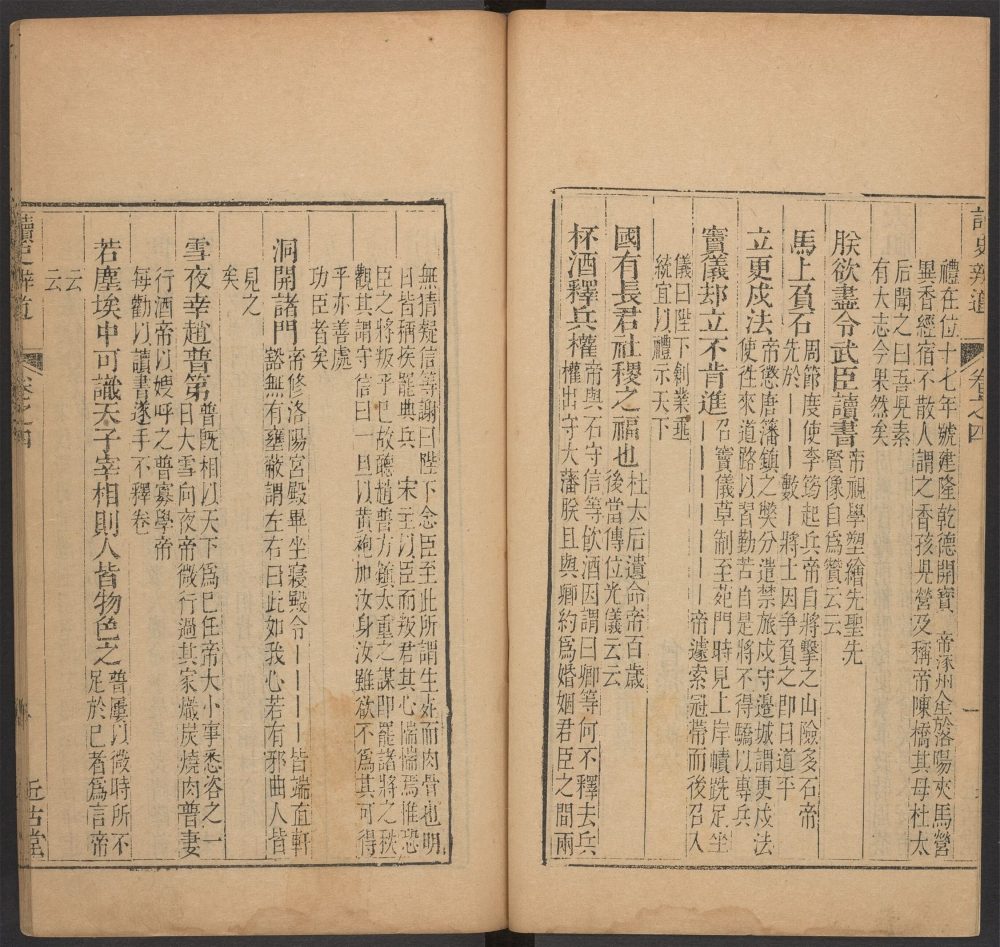 讀史辨道
卷之四
一
禮在位十七年號建隆乾德開寶　帝涿州人生於洛陽夾馬營
異香經宿不散人謂之香孩兒營及稱帝陳橋其母杜太
后聞之曰吾兒素
有大志今果然矣
朕欲盡令武臣讀書帝視學塑繪先聖先
賢像自爲贊云云
馬上負石周節度使李筠起兵帝自將擊之山險多石帝
先於｜｜數｜將士因爭負之即日道平
立更戍法帝懲唐藩鎮之獘分遣禁旅戍守邊城謂更戍法
使徃來道路以習勤苦自是將不得驕以專兵
竇儀却立不肯進｜｜｜｜｜｜帝遽索冠帶而後召入
召竇儀草制至苑門時見上岸幘跣足坐
儀曰陛下創業垂
統宜以禮示天下
國有長君社稷之福也杜太后遺命帝百歲
後當傳位光儀云云
杯酒釋兵權帝與石守信等飮酒因謂曰卿等何不釋去兵
權出守大藩朕且與卿約爲婚姻君臣之間兩
無猜疑信等謝曰陛下念臣至此所謂生死而肉骨也明
日皆稱疾罷典兵　宋主以臣而叛君其心惴惴焉惟恐
臣之將叛乎已故聽趙普方鎮太重之謀即罷諸將之秩
觀其謂守信曰一旦以黃袍加汝身汝雖欲不爲其可得
乎亦善處
功臣者矣
洞開諸門帝修洛陽宮殿畢坐寢殿令｜｜｜｜皆端直軒
豁無有壅蔽謂左右曰此如我心若有邪曲人皆
見之
矣
雪夜幸趙普第普旣相以天下爲已任帝大小事悉咨之一
日大雪向夜帝微行過其家熾炭燒肉普妻
行酒帝以嫂呼之普寡學帝
每勸以讀書遂手不釋卷
若塵埃中可識天子宰相則人皆物色之普屢以微時所不
足於已者爲言帝
云
云
讀史辨道
卷之四
近古堂